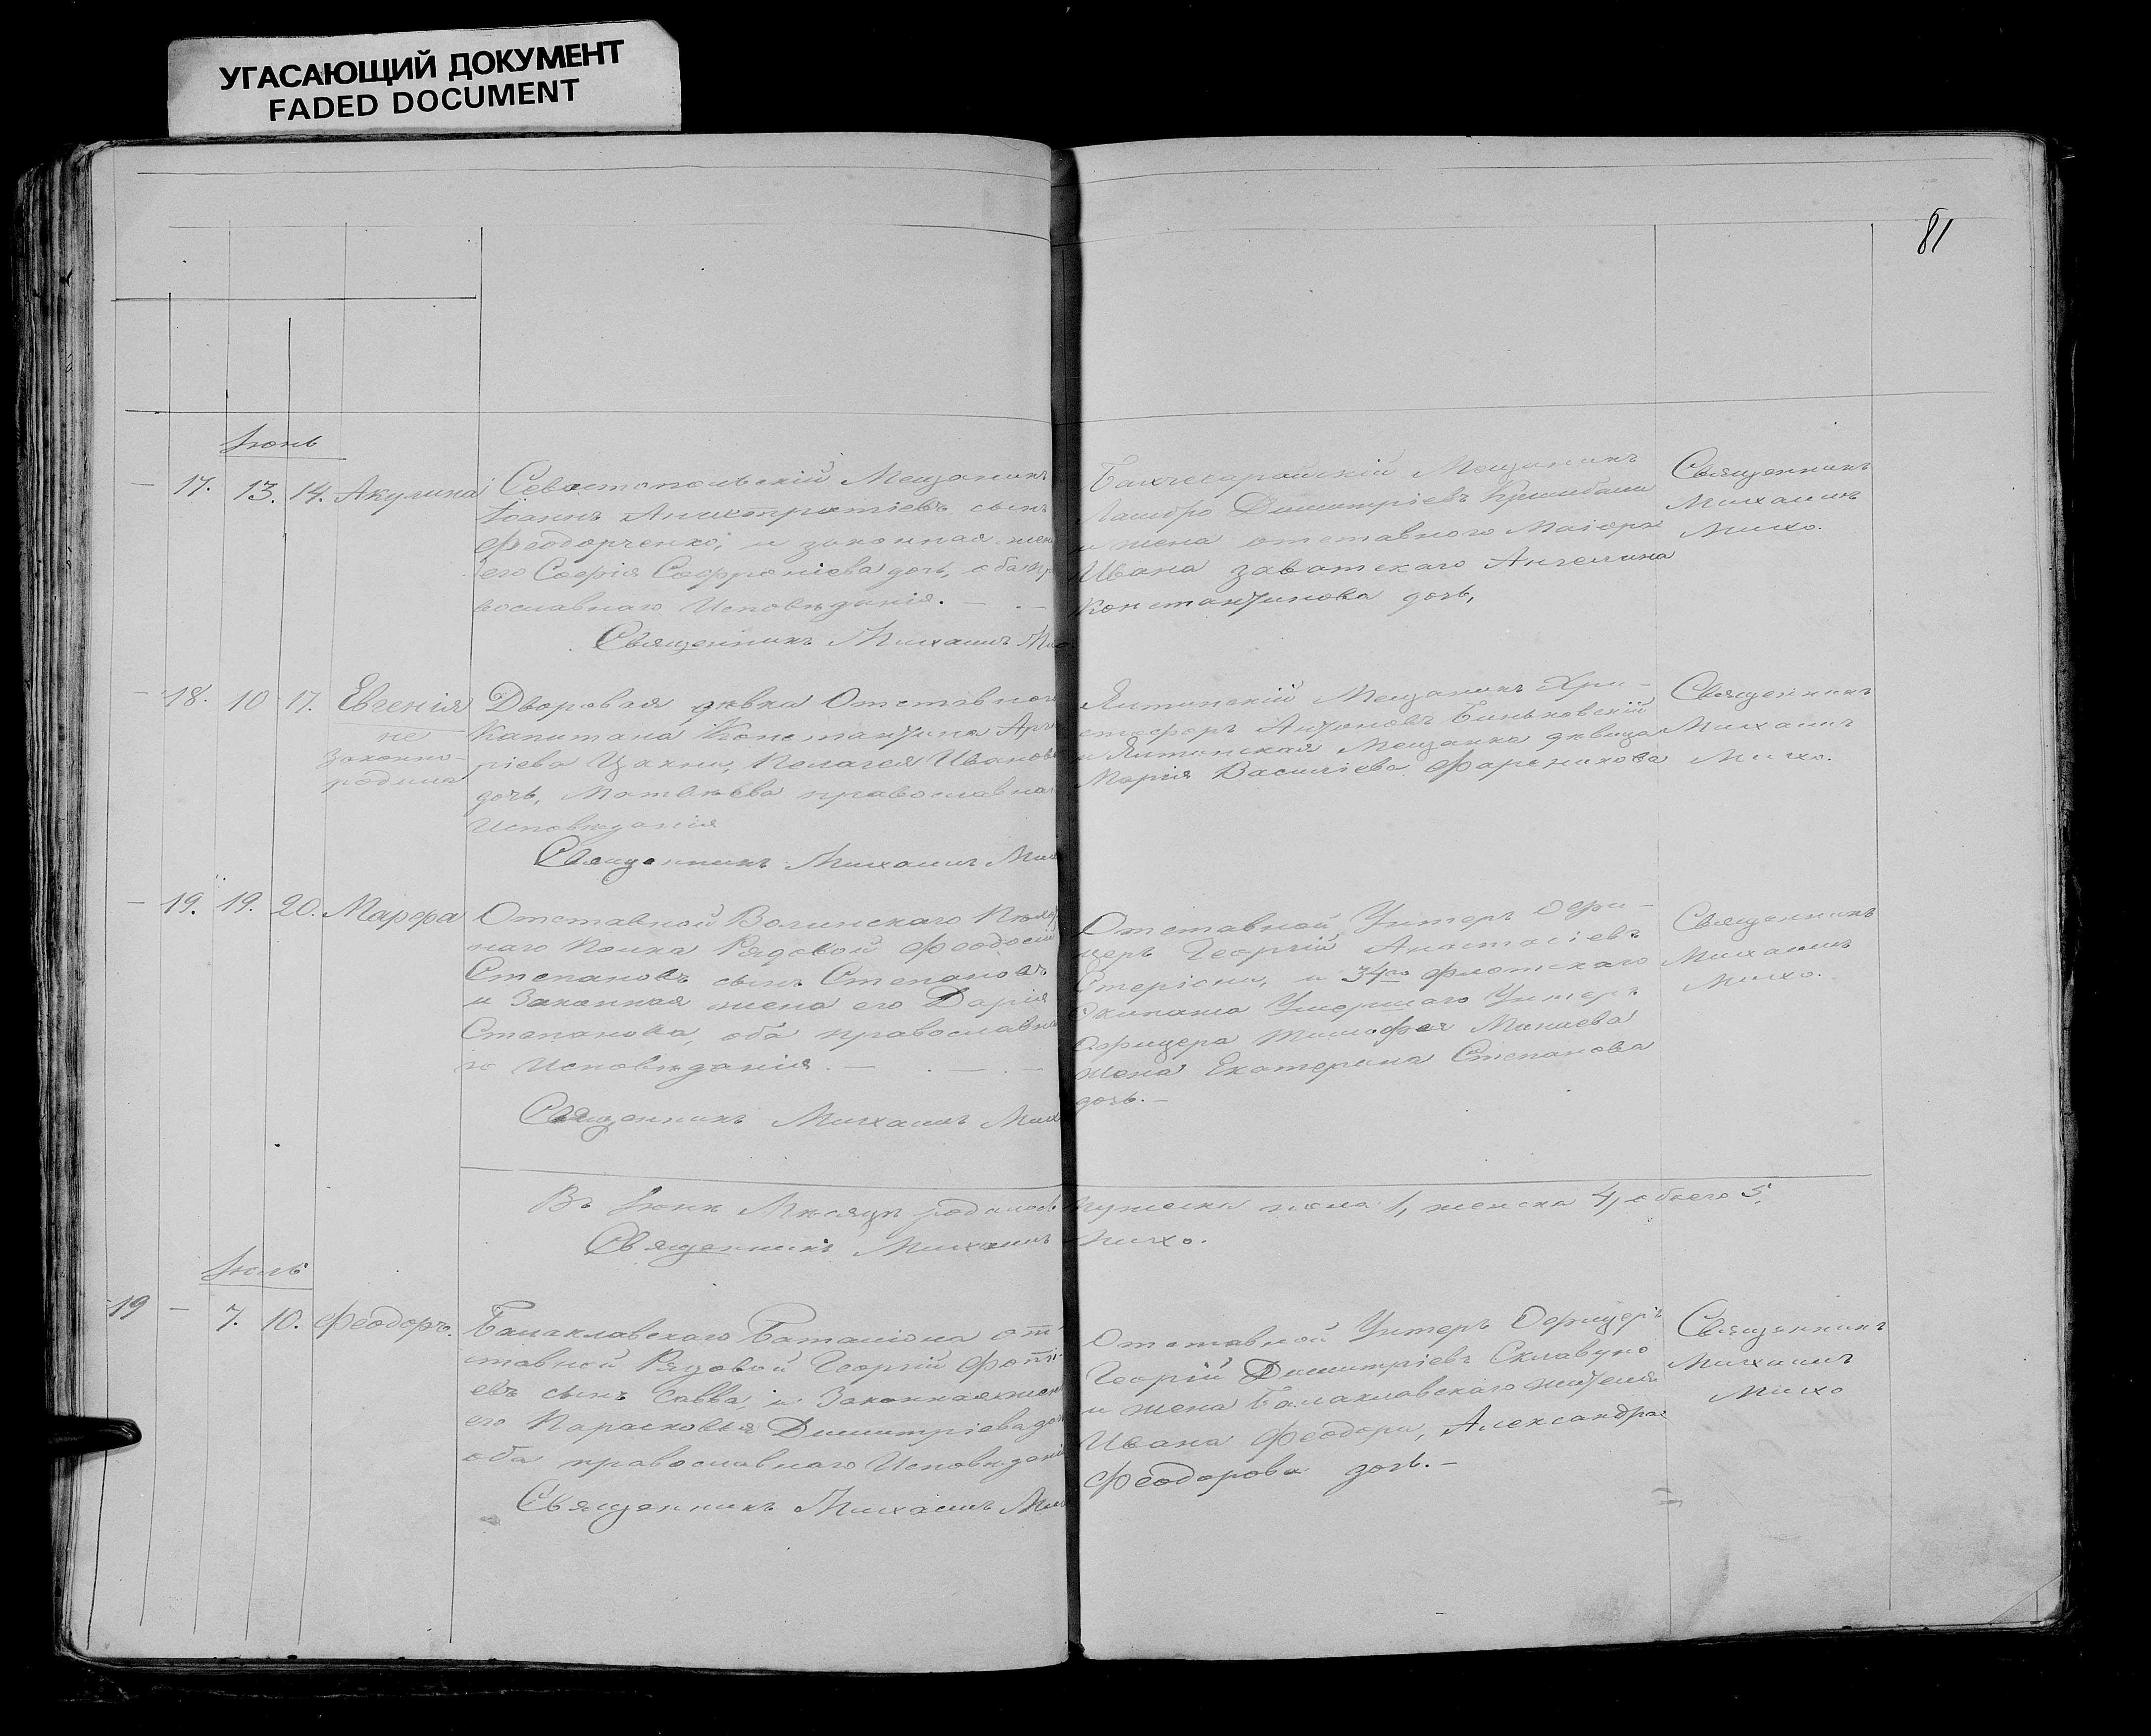 УГАСАЮЩИЙ ДОКУМЕНТ
FADED DOCUMENT
81
Іюнь
17. 13. 14. Акулина
Севастопольскій Мещанинъ
Іоаннъ сынъ
Феодорченко, и законная жен
его Софія Софроніева дочь, оба пра
вославнаго Исповѣданія.
Священникъ Михаилъ Мих
Бахчесарайскій Мещанинъ
Димитріевъ
и жена отставного Маіора
Ивана Ангелина
Константинова дочь,
Священникъ
Михаилъ
Михо.
18. 10 17. Евгенія
не
законно-
родная
Дворовая дѣвка Отставного
Капитана Константина
Цакни, Пелагея Иванова
дочь, Матвѣева православна
Исповѣданія
Священникъ Михаилъ Мих
Ялтинскій Мещанинъ Хри-
стофоръ Антоновъ
и Ялтинская Мещанка дѣвица
Марія Василіева
Священникъ
Михаилъ
Михо.
19. 19. 20. Марфа
Отставной Волинскаго Пѣхот
наго Полка Рядовой Феодосій
Степановъ сынъ Степановъ
и Законная жена его Дарія
Степанова, оба православна
го Исповѣданія.
Священникъ Михаилъ Мих
Отставной Унтеръ Офи-
церъ Георгій Анастасіевъ
Стеріони, и 34го Флотскаго
Экипажа Умершаго Унтеръ
Офицера Тимофея Минаева
жена Екатерина Степанова
дочь.
Священникъ
Михаилъ
Михо.
Въ Іюнѣ Мѣсяцѣ родилось мужеска пола 1, женска 4, обоего 5.
Священникъ Михаилъ Михо.
Іюль
19 — 7. 10. Феодоръ.
Балаклавскаго Баталіона от
ставной Рядовой Георгій Фоті-
евъ сынъ Савва, и Законная жен
его Парасковья Димитріева доч
оба православнаго Исповѣданія
Священникъ Михаилъ Мих
Отставной Унтеръ Офицеръ
Георгій Димитріевъ Склавуно
и жена Балаклавскаго жителя
Ивана Феодори, Александра
Феодорова дочь.
Священникъ
Михаилъ
Михо